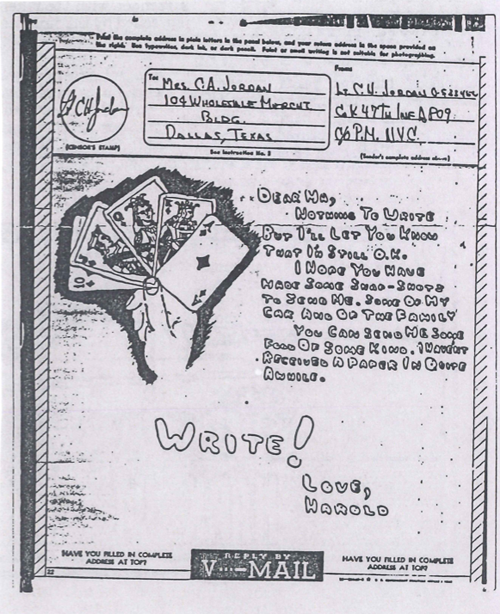 Print the complete address in plain letters in the panel below, and your return address in the space provided on
the right. Use typewriter, dark ink, or dark pencil. Faint or small writing is not suitable for photographing.
To:
From
MRS. C.A. JORDAN
109 WHOLESALE MERCNT
BLDG.
DALLAS, TEXAS
LT. C.H. JORDAN
CO K 47TH INF APO 9
C/O P.M. NYC.
(CENSOR'S STAMP)
See Instruction No. 2
(Sender's complete address above)
DEAR MA,
NOTHING TO WRITE
BUT I'LL LET YOU KNOW
THAT I'M STILL O.K.
I HOPE YOU HAVE
MADE SOME SNAP-SHOTS
TO SEND ME. SOME OF MY
CAR AND OF THE FAMILY
YOU CAN SEND ME SOME
FOOD OF SOME KIND. I HAVEN'T
RECEIVED A PAPER IN QUITE
AWHILE.
WRITE!
LOVE,
HAROLD
10
J
Q
K
A
HAVE YOU FILLED IN COMPLETE
ADDRESS AT TOP?
REPLY BY
V···—MAIL
HAVE YOU FILLED IN COMPLETE
ADDRESS AT TOP?